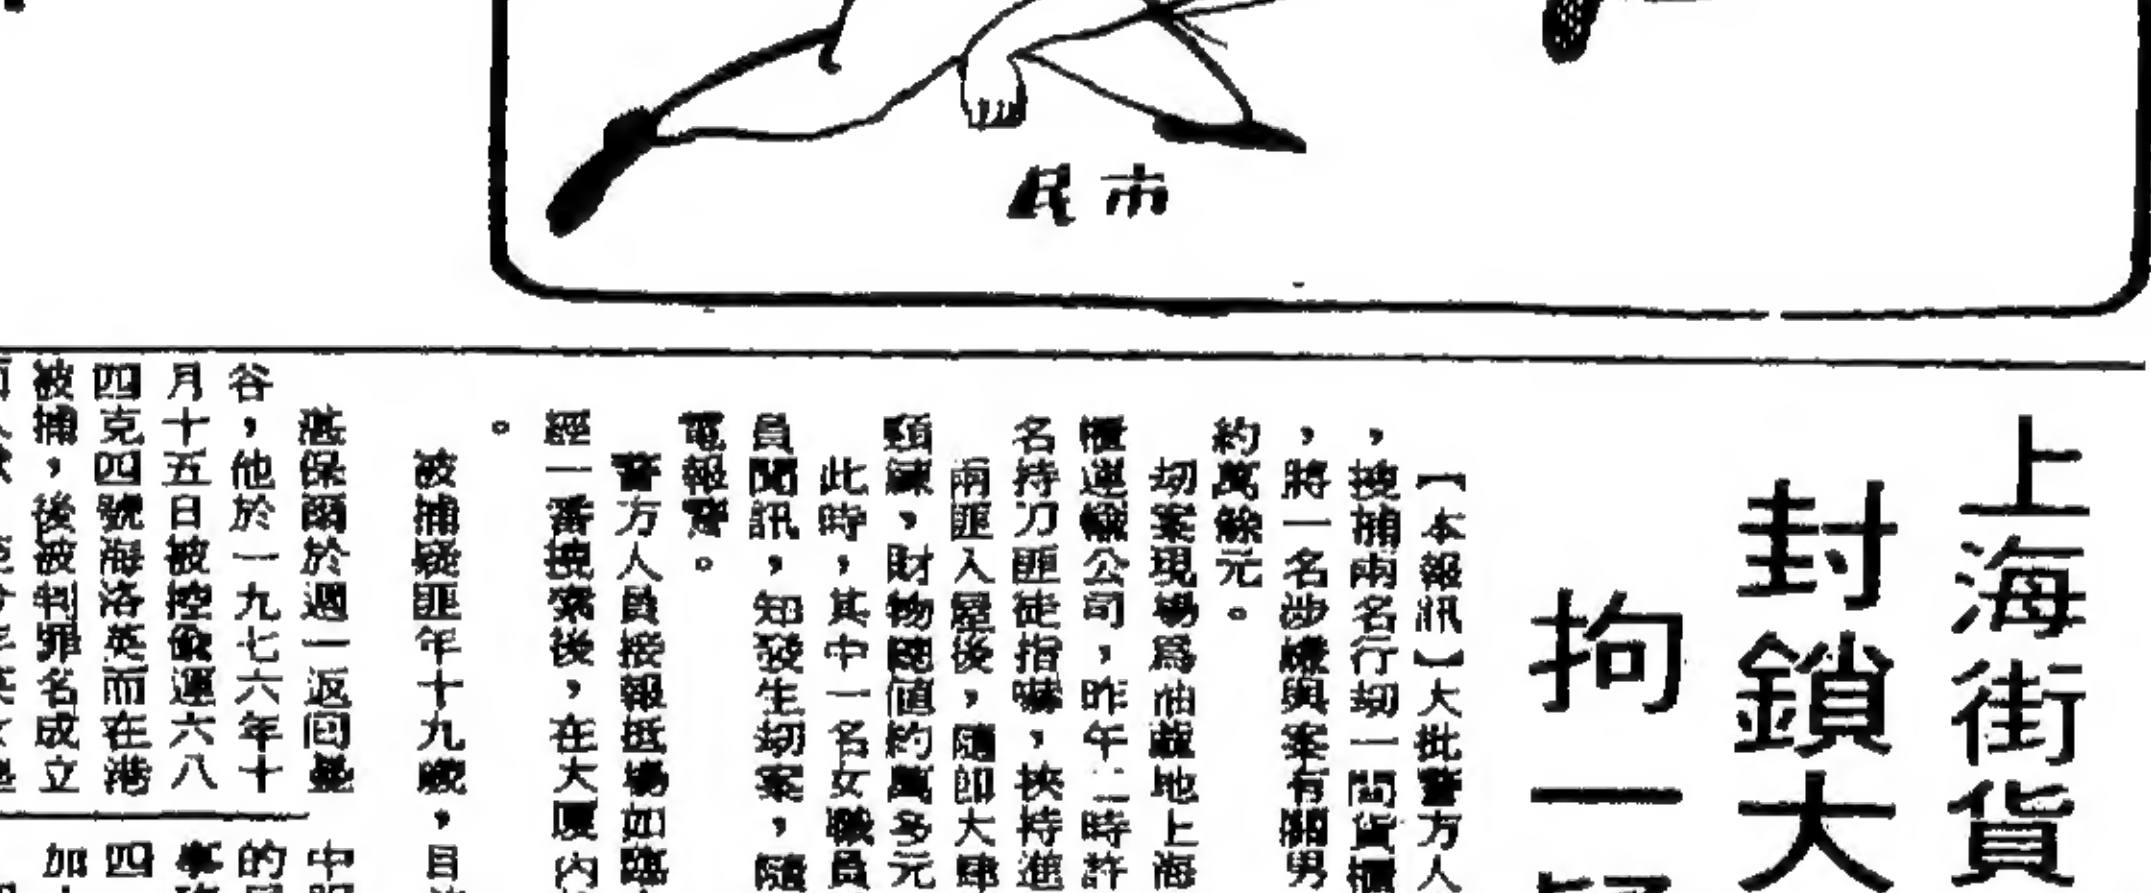 市民
上海街貨
封鎖大
拘一
【本報訊】大批警方人
，搜捕兩名行刧一間貨櫃
，將一名涉嫌與案有關男
約萬餘元。
刧案現場爲油蔴地上海
櫃運輸公司，昨午二時許
名持刀匪徒指嚇，挾持進
兩匪入屋後，隨即大肆
頸鍊，財物總值約萬多元
此時，其中一名女職員
員聞訊，知發生刧案，隨
電報警。
警方人員接報抵場如臨
經一番搜索後，在大厦內
。
被捕疑匪年十九歲，目
保爾於週一返回曼
谷，他於一九七六年十
月十五日被控偷運六八
四克四號海洛英而在港
被捕，後被判罪名成立
中
的
事
四
加